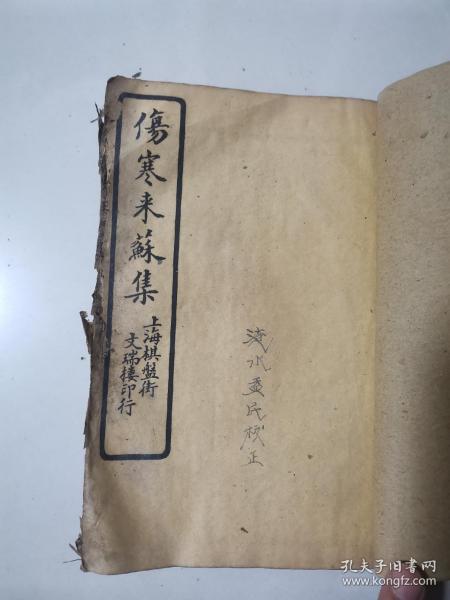 傷寒来蘇集
上海棋盤街
文瑞楼印行
孔夫子旧书网
www.kongfz.com